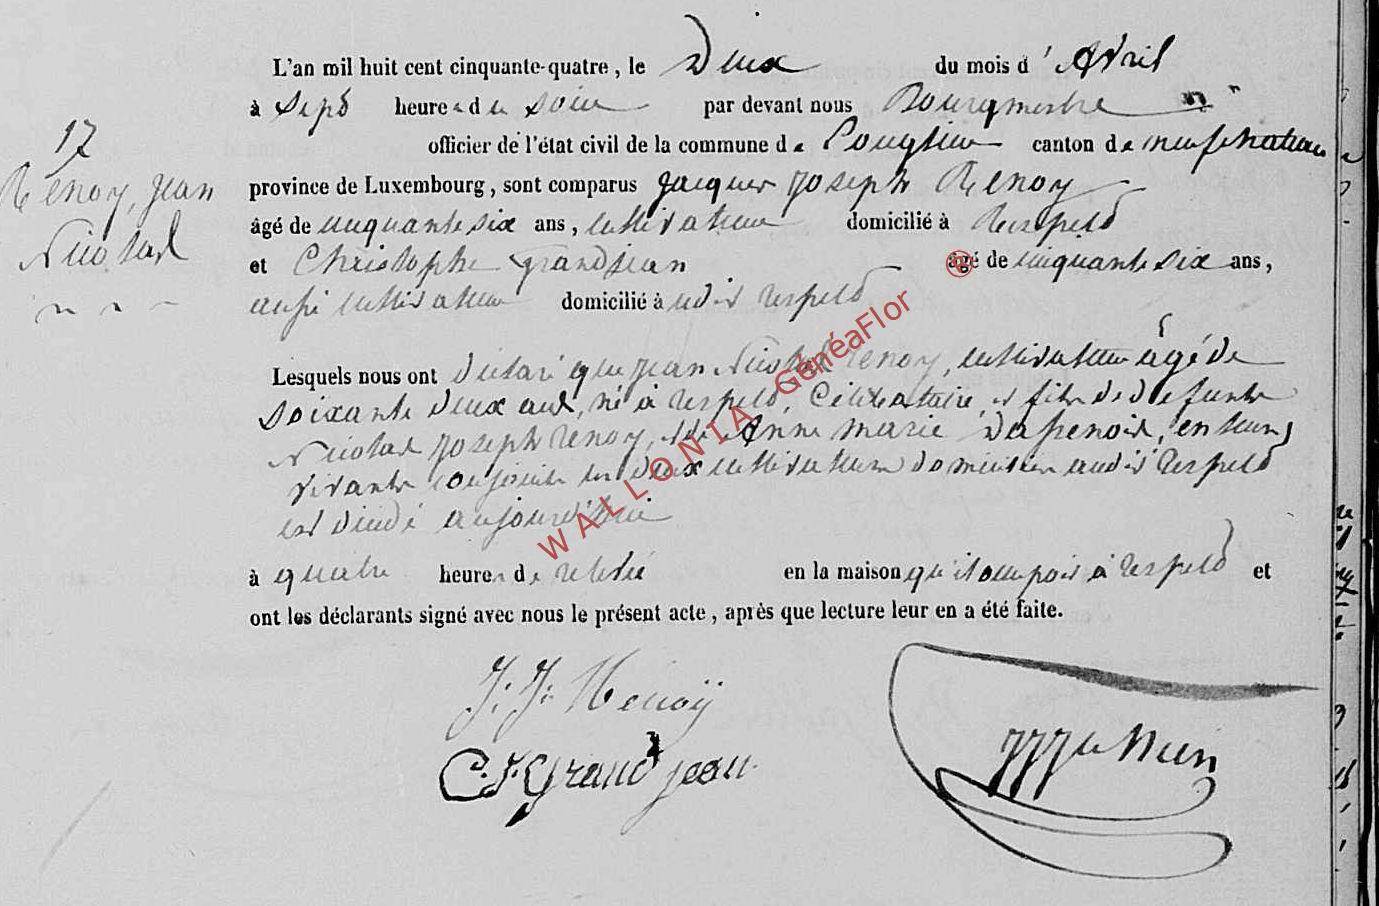 L'an mil huit cent cinquante-quatre, le Deux du mois d'Avril
à Sept heures du soir par devant nous Bourgmestre
officier de l'état civil de la commune de Longlier canton de neufchateau
17
Renoy, Jean
Nicolas
province de Luxembourg, sont comparus Jacques Joseph Renoy
âgé de cinquante six ans, cultivateur domicilié à Respelt
et Christophe Grandjean âgé de cinquante six ans,
aussi cultivateur domicilié à udit respelt
Lesquels nous ont déclaré que jean Nicolas renoy, cultivateur âgé de
soixante deux ans, né à respelt, Célibataire, et fils de defunts
Nicolas joseph renoy, et de Anne marie Dufrenois, en leurs
vivants conjoints les deux cultivateurs domiciliés audit respelt
est décédé aujourd'hui
à quatre heures de relevée en la maison qu'il occupoit à respelt et
ont les déclarants signé avec nous le présent acte, après que lecture leur en a été faite.
J. J. Renoÿ
C. J. Grandjean
WALLONIA GénéaFlor